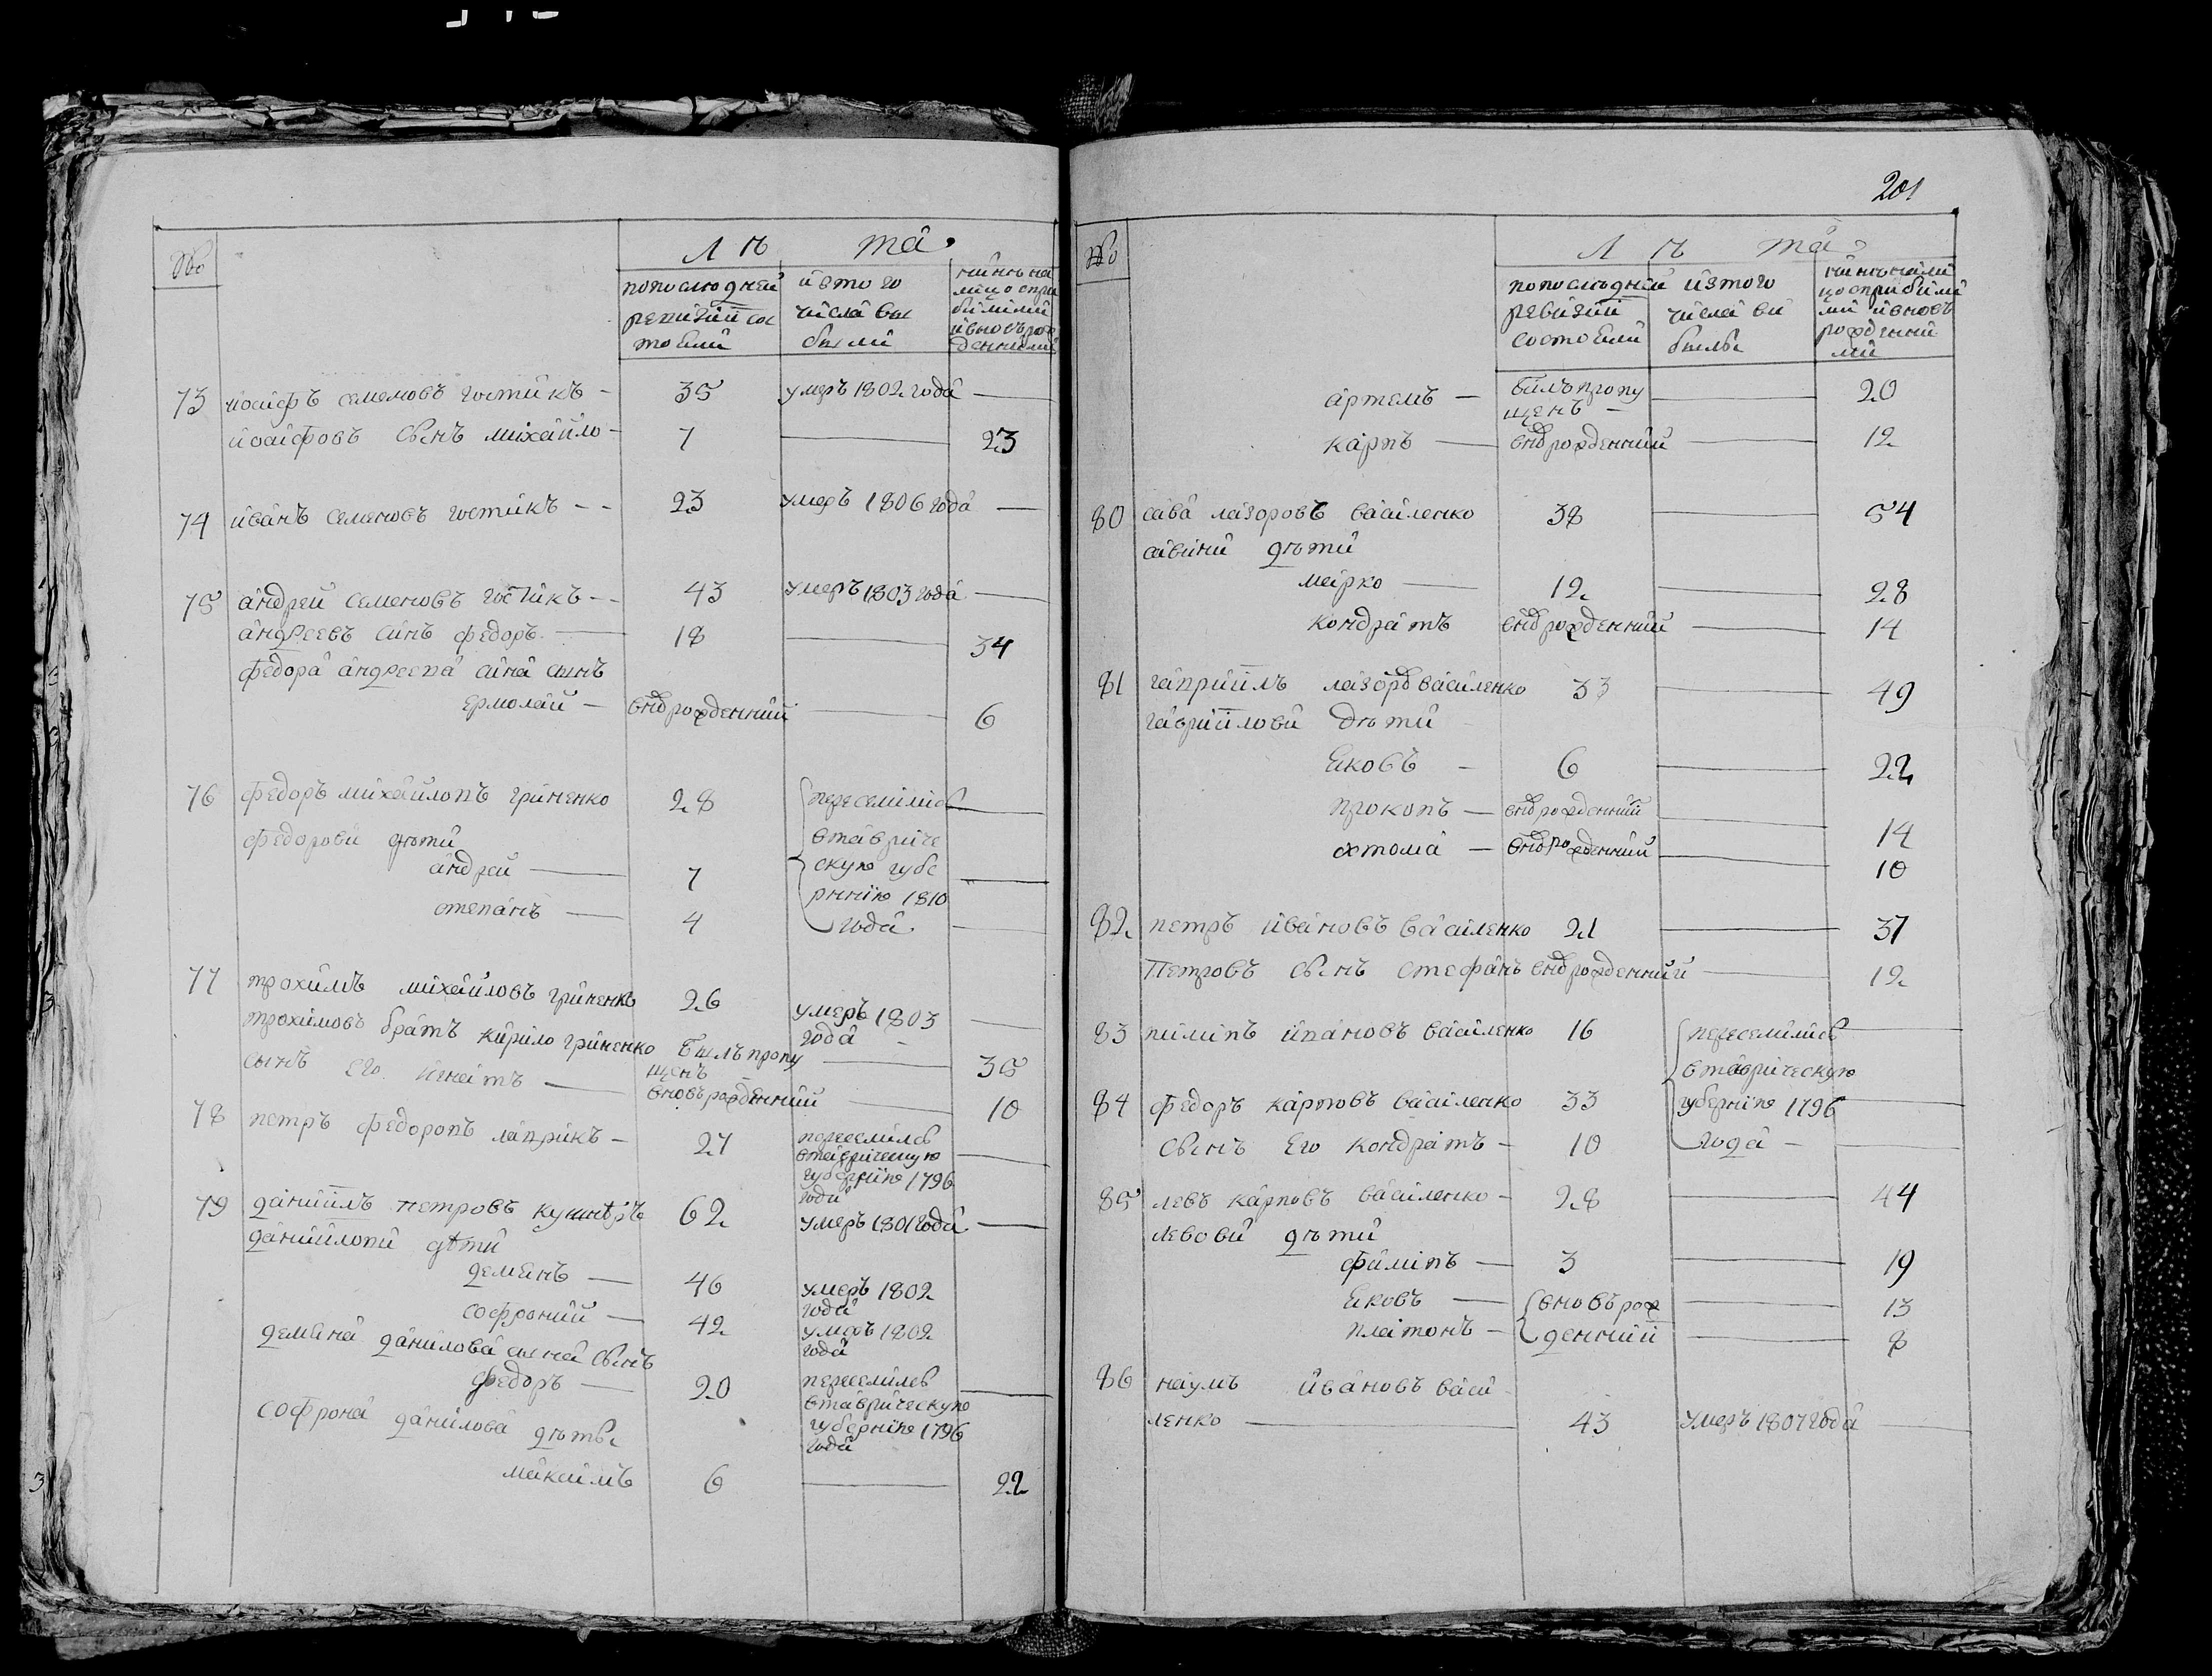 №
Лѣ та
попослѣдней ревизіи со стояли
изтого числа вы были
нынѣ на лицо спри былыми ивновь рож денными
73 иосифъ семеновъ гостикъ — 35 умеръ 1802 года —
иосифовъ сынъ михайло — 7 — 23
74 иванъ семеновъ гостикъ - - 23 умеръ 1806 года —
75 андрей семеновъ гостикъ - - 43 умеръ 1803 года —
андреевъ синъ федоръ — 18 — 34
федора андреева сина сынъ
ермолай — вновь рожденний — 6
76 федоръ михайловъ гриненко 28 переселились —
федорови дѣти втавриче
андрей — 7 скую губе —
рннію 1810
степанъ — 4 года —
77 трохимъ михайловъ гриненко 26 умеръ 1803 года —
трохимовъ братъ кирило гриненко былъ пропу щенъ — 35
сынъ его игнатъ — вновьрожденний — 10
78 петръ федоровъ лаврикъ — 27 переселився втаврическую губернію 1796 года —
79 даниилъ петровъ кушніръ 62 умеръ 1801 года —
даниилови дѣти
демянъ — 46 умеръ 1802 года
софроний — 42 умеръ 1802 года
демяна данилова сына сынъ
федоръ — 20 переселився втаврическую губернію 1796 года —
софрона данилова дѣты
максимъ 6 — 22
201
№
Лѣ та
попослѣдней ревизіи состояли
изтого числа ви былы
нинѣ нали цо сприбили ми ивновь рожденни ми
артемъ — билъ пропу щенъ — — 20
карпъ — вновь рожденний — 12
80 сава лазоровъ василенко 38 — 54
савини дѣти
марко — 12 — 28
кондратъ вновь рожденний — 14
81 гавриилъ лазоровъ василенко 33 — 49
гавриилови дѣти
яковъ — 6 — 22
прокопъ — вновь рожденний — 14
хтома — вновь рожденний — 10
82 петръ ивановъ василенко 21 — 37
Петровъ сынъ стефанъ вновь рожденний — 12
83 пилипъ ивановъ василенко 16 переселились —
втаврическую
84 федоръ карповъ василенко 33 губернію 1796 —
сынъ Его кондратъ — 10 года — —
85 левъ карповъ василенко — 28 44
левови дѣти
филипъ — 3 — 19
яковъ — вновърож — 13
платонъ — денний — 8
86 наумъ ивановъ васи
ленко — 43 умеръ 1807 года —